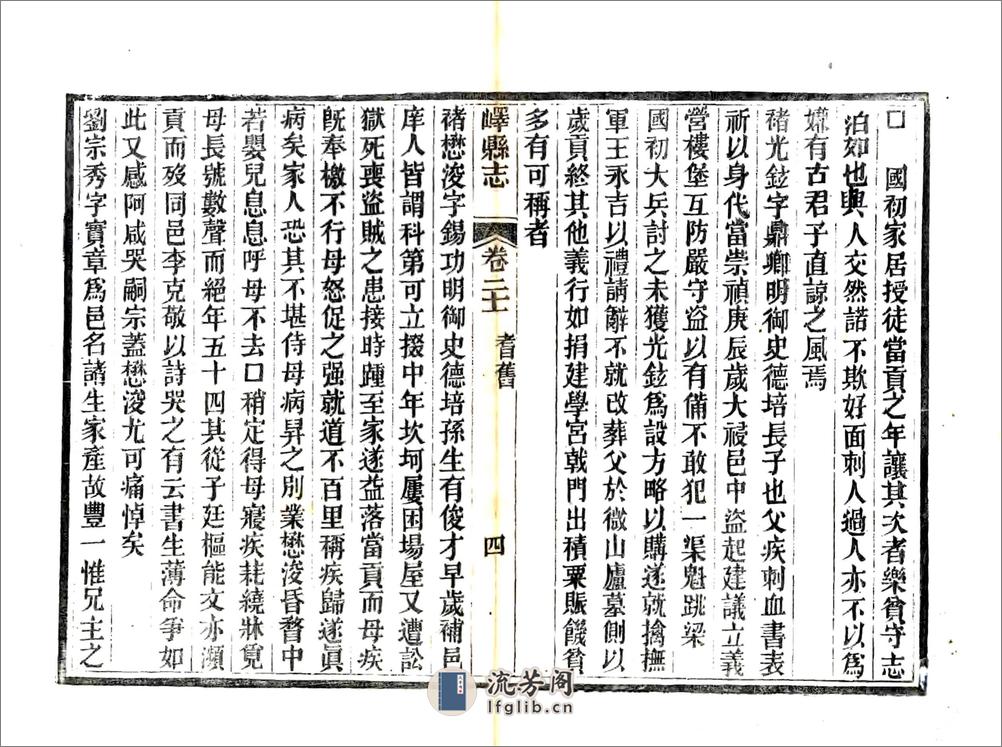 □　國初家居授徒當貢之年讓其次者樂貧守志
泊如也與人交然諾不欺好面刺人過人亦不以為
嫌有古君子直諒之風焉
褚光鉉字鼎卿明御史德培長子也父疾刺血書表
祈以身代當崇禎庚辰歲大祲邑中盜起建議立義
營樓堡互防嚴守盜以有備不敢犯一渠魁跳梁
國初大兵討之未獲光鉉為設方略以購遂就擒撫
軍王永吉以禮請辭不就改葬父於微山廬墓側以
歲貢終其他義行如捐建學宮戟門出積粟賑饑貧
多有可稱者
嶧縣志　卷二十　耆舊　四
褚懋浚字錫功明御史德培孫生有俊才早歲補邑
庠人皆謂科第可立掇中年坎坷屢困場屋又遭訟
獄死喪盜賊之患接時踵至家遂益落當貢而母疾
旣奉檄不行母怒促之强就道不百里稱疾歸遂眞
病矣家人恐其不堪侍母病舁之別業懋浚昏瞀中
若嬰兒息息呼母不去口稍定得母寢疾耗繞牀覓
母長號數聲而絕年五十四其從子廷樞能文亦瀕
貢而歿同邑李克敬以詩哭之有云書生薄命爭如
此又感阿咸哭嗣宗蓋懋浚尤可痛悼矣
劉宗秀字實章為邑名諸生家產故豐一惟兄主之
流芳阁
lfglib.cn